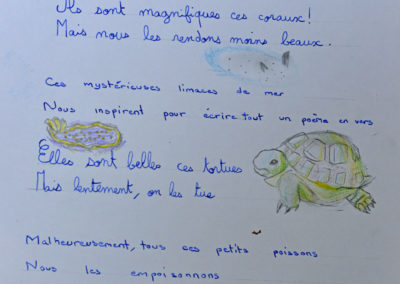 Ils sont magnifiques ces coraux!
Mais nous les rendons moins beaux.
Ces mystérieuses limaces de mer
Nous inspirent pour écrire tout un poème en vers
Elles sont belles ces tortues
Mais lentement, on les tue
Malheureusement, tous ces petits poissons
Nous les empoisonnons